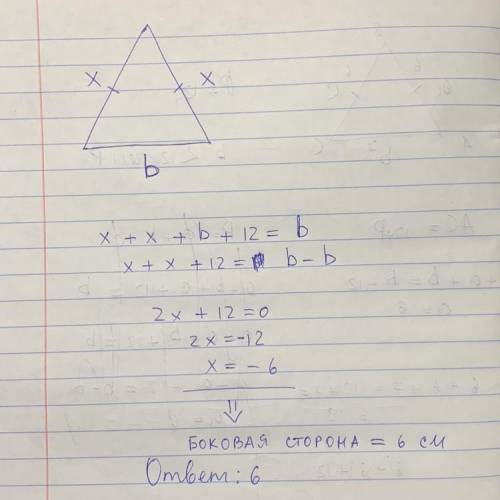 x x
b
x + x + b + 12 = b
x + x + 12 = b - b
2x + 12 = 0
2x = -12
x = - 6
⇓
БОКОВАЯ СТОРОНА = 6 СМ
Ответ: 6